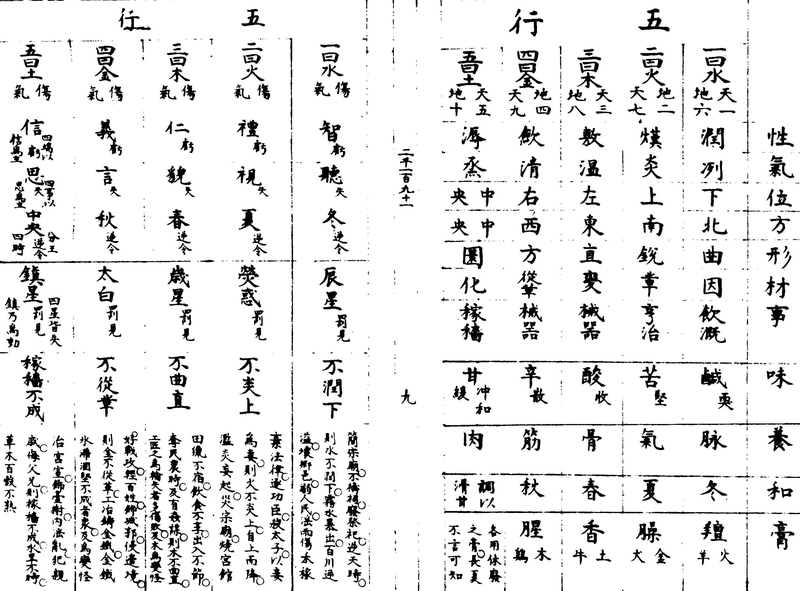 五行
性氣位方形材事味養和膏
一曰水 天一地六 潤 冽 下 北 曲 因 飲溉 鹹耎 脉 冬 羶 火羊
二曰火 地二天七 熯 炎 上 南 銳 革 亨冶 苦堅 氣 夏 臊 金犬
三曰木 天三地八 敷 溫 左 東 直 變 械器 酸收 骨 春 香 土牛
四曰金 地四天九 斂 清 右 西 方 從革 械器 辛散 筋 秋 腥 木鷄
五曰土 天五地十 溽 蒸 中央 中央 圜 化 稼穡 甘沖和緩 肉 調以滑甘 各用休廢之膏長夏不言可知
二千一百九十一
九
五行
一曰水 傷氣 智虧 聽失 冬逆令 辰星罰見 不潤下
簡宗廟不禱祠廢祭祀逆天時
則水不潤下霧水暴出百川逆
溢壞鄉邑溺人民淫雨傷稼穡
二曰火 傷氣 禮虧 視失 夏逆令 熒惑罰見 不炎上
棄法律逐功臣殺太子以妾
為妻則火不炎上自上而降
濫炎妄起災宗廟燒宮館
三曰木 傷氣 仁虧 貌失 春逆令 歲星罰見 不曲直
田獵不宿飲食不享出入不節
奪民農時及有姦謀則木不曲直
工匠之為輪矢者多傷敗及木為變怪
四曰金 傷氣 義虧 言失 秋逆令 太白罰見 不從革
好戰攻輕百姓飾城郭侵邊境
則金不從革工冶鑄金鐵金鐵
冰滯涸堅不成者衆及為變怪
五曰土 傷氣 信虧 四端以信為主 思失 四事以思為主 中央逆令 分王四時 鎮星罰見 四星皆失鎮乃為動 稼穡不成
治宮室飾臺榭內淫亂犯親
戚侮父兄則稼穡不成水旱不時
草木百穀不熟